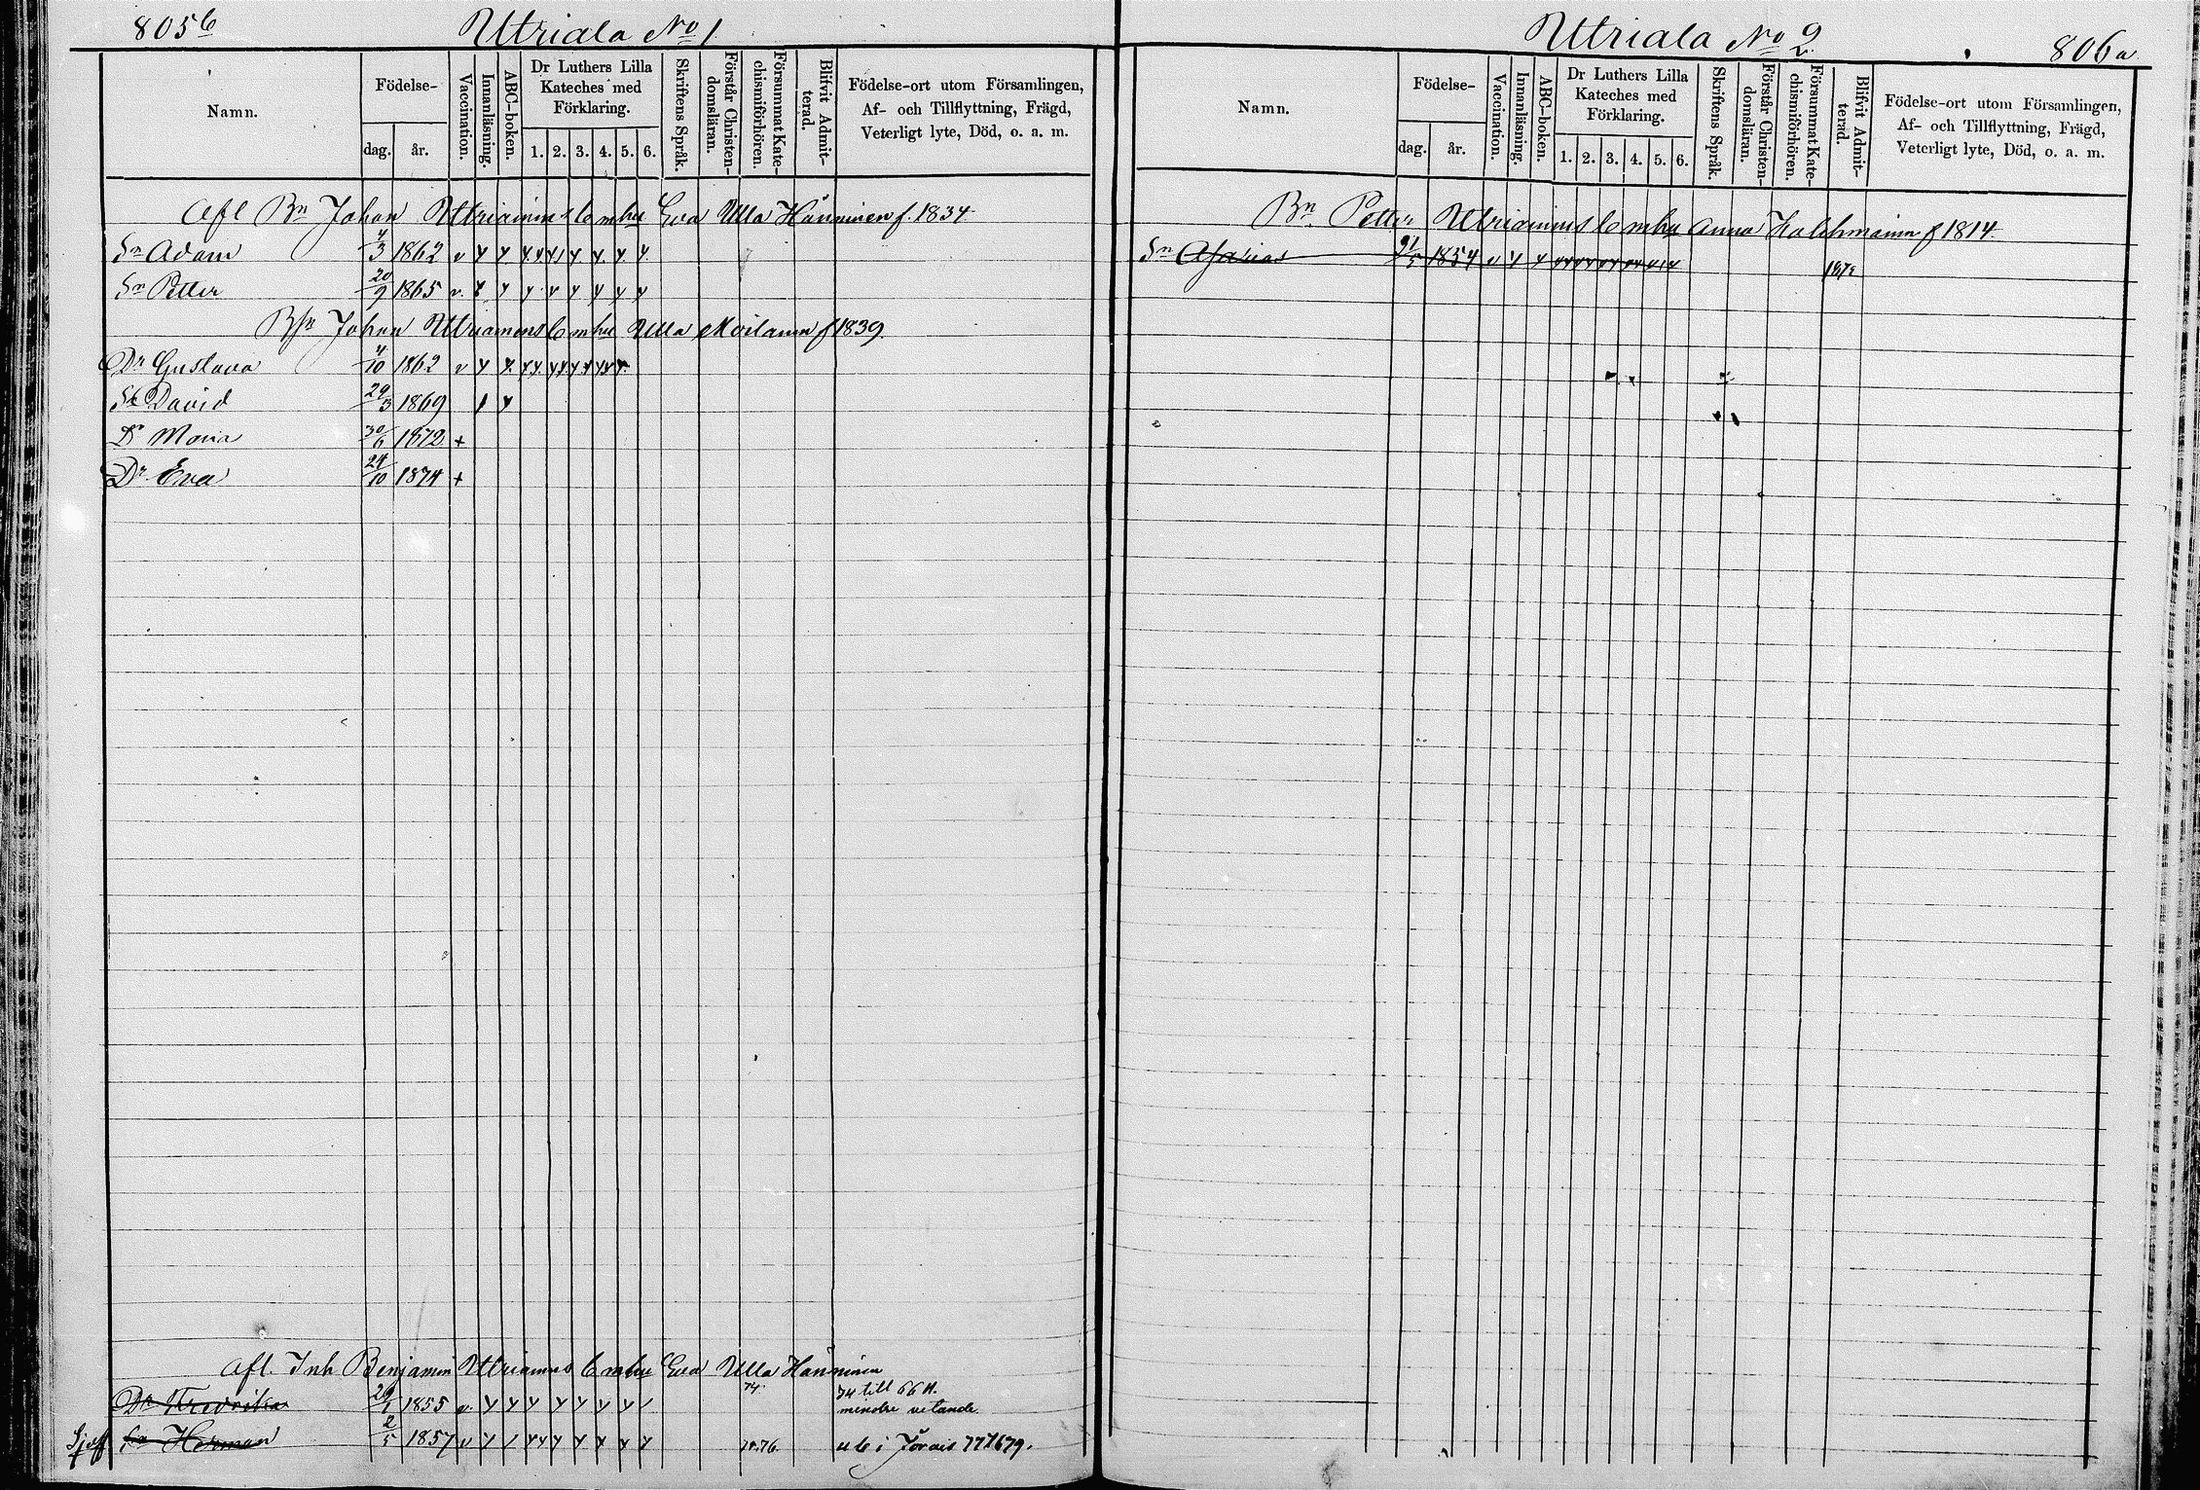 805b Utriala No 1.
Namn.
Födelse-
dag. år.
Vaccination.
Innanläsning.
ABC-boken.
Dr Luthers Lilla
Kateches med
Förklaring.
1. 2. 3. 4. 5. 6.
Skriftens Språk.
Förstår Christen-
domsläran.
Försummat Kate-
chismiförhören.
Blifvit Admit-
terad.
Födelse-ort utom Församlingen,
Af- och Tillflyttning, Frägd,
Veterligt lyte, Död, o. a. m.
Afl Bn Johan Utriainens Enka Eva Ulla Hänninen f. 1834
Sn Adam 4/3 1862
Sn Petter 20/9 1865
Johan Utriainens Ulla Moilanen f 1839.
Dr Gustava 4/10 1862
Sn David 29/3 1869
Dr Maria 30/6 1872 +
Dr Eva 24/10 1874 +
Afl. Inh Benjamin Utriainens Eva Ulla Hänninen
74. 74 till 66 A.
Dr Fredrika 29/1 1855
mindre vetande.
Sn Herman 2/5 1857 76. i Jorois 77 79.
Utriala No 2 806a
Namn.
Födelse-
dag. år.
Vaccination.
Innanläsning.
ABC-boken.
Dr Luthers Lilla
Kateches med
Förklaring.
1. 2. 3. 4. 5. 6.
Skriftens Språk.
Förstår Christen-
domsläran.
Försummat Kate-
chismiförhören.
Blifvit Admit-
terad.
Födelse-ort utom Församlingen,
Af- och Tillflyttning, Frägd,
Veterligt lyte, Död, o. a. m.
Bn Petter Utriainens Anna f 1814.
Sn Asarias 21/5 1854